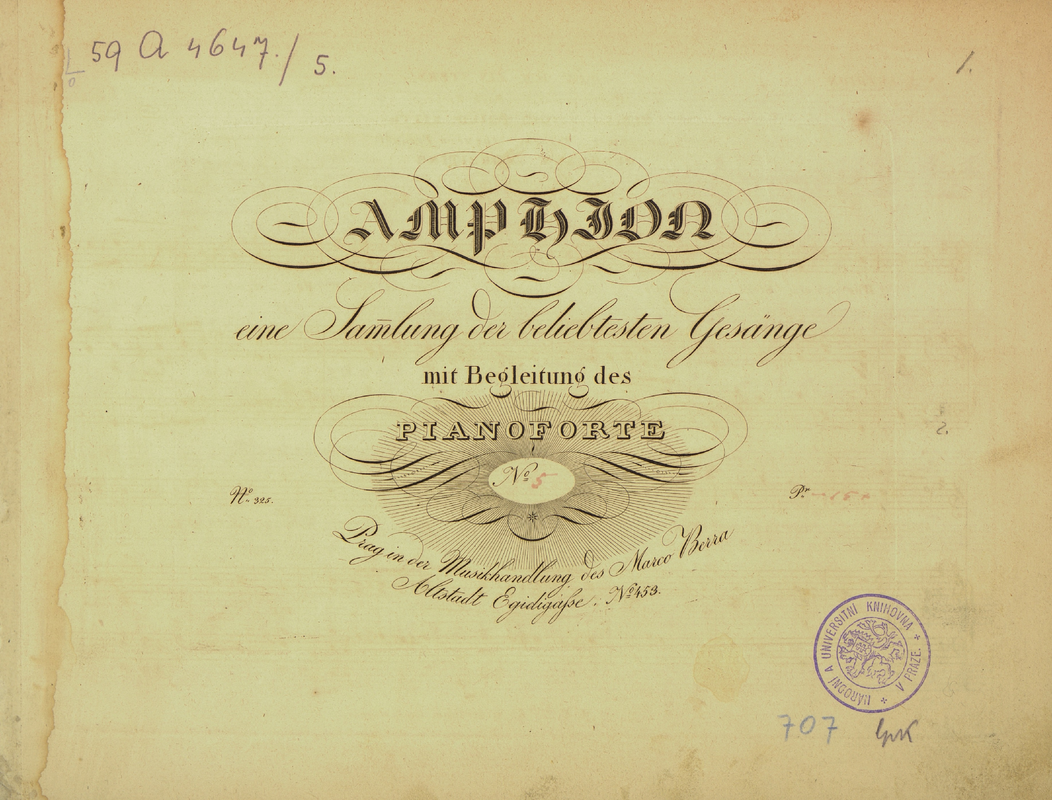 59 A 4647./ 5.
1.
AMPHION
eine Sam̄lung der beliebtesten Gesänge
mit Begleitung des
PIANOFORTE
2.
No 5
No 325.
Pr
Prag in der Musikhandlung des Marco Berra
Altstadt Egidigaſse. No 453.
NÁRODNÍ A UNIVERSITNÍ KNIHOVNA V PRAZE.
707